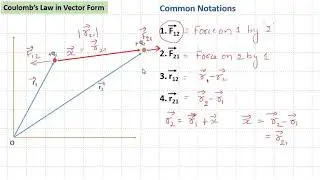 Coulomb's Law in Vector Form
Common Notations
|r⃗21|
F⃗12
+q1
x⃗ = r⃗21
+q2
F⃗21
r⃗1
r⃗2
O
1. F⃗12 = Force on 1 by 2
2. F⃗21 = Force on 2 by 1
3. r⃗12 = r⃗1 - r⃗2
4. r⃗21 = r⃗2 - r⃗1
r⃗2 = r⃗1 + x⃗
x⃗ = r⃗2 - r⃗1
= r⃗21